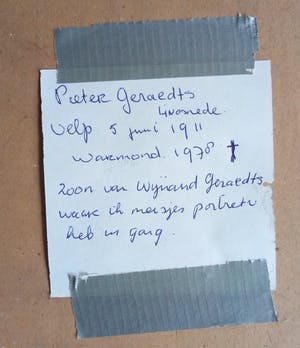 Pieter Geraedts
Linosnede.
Velp 5 juni 1911
Warmond. 1978 †
Zoon van Wijnand Geraedts
waar ik meisjes portret
heb in gang.